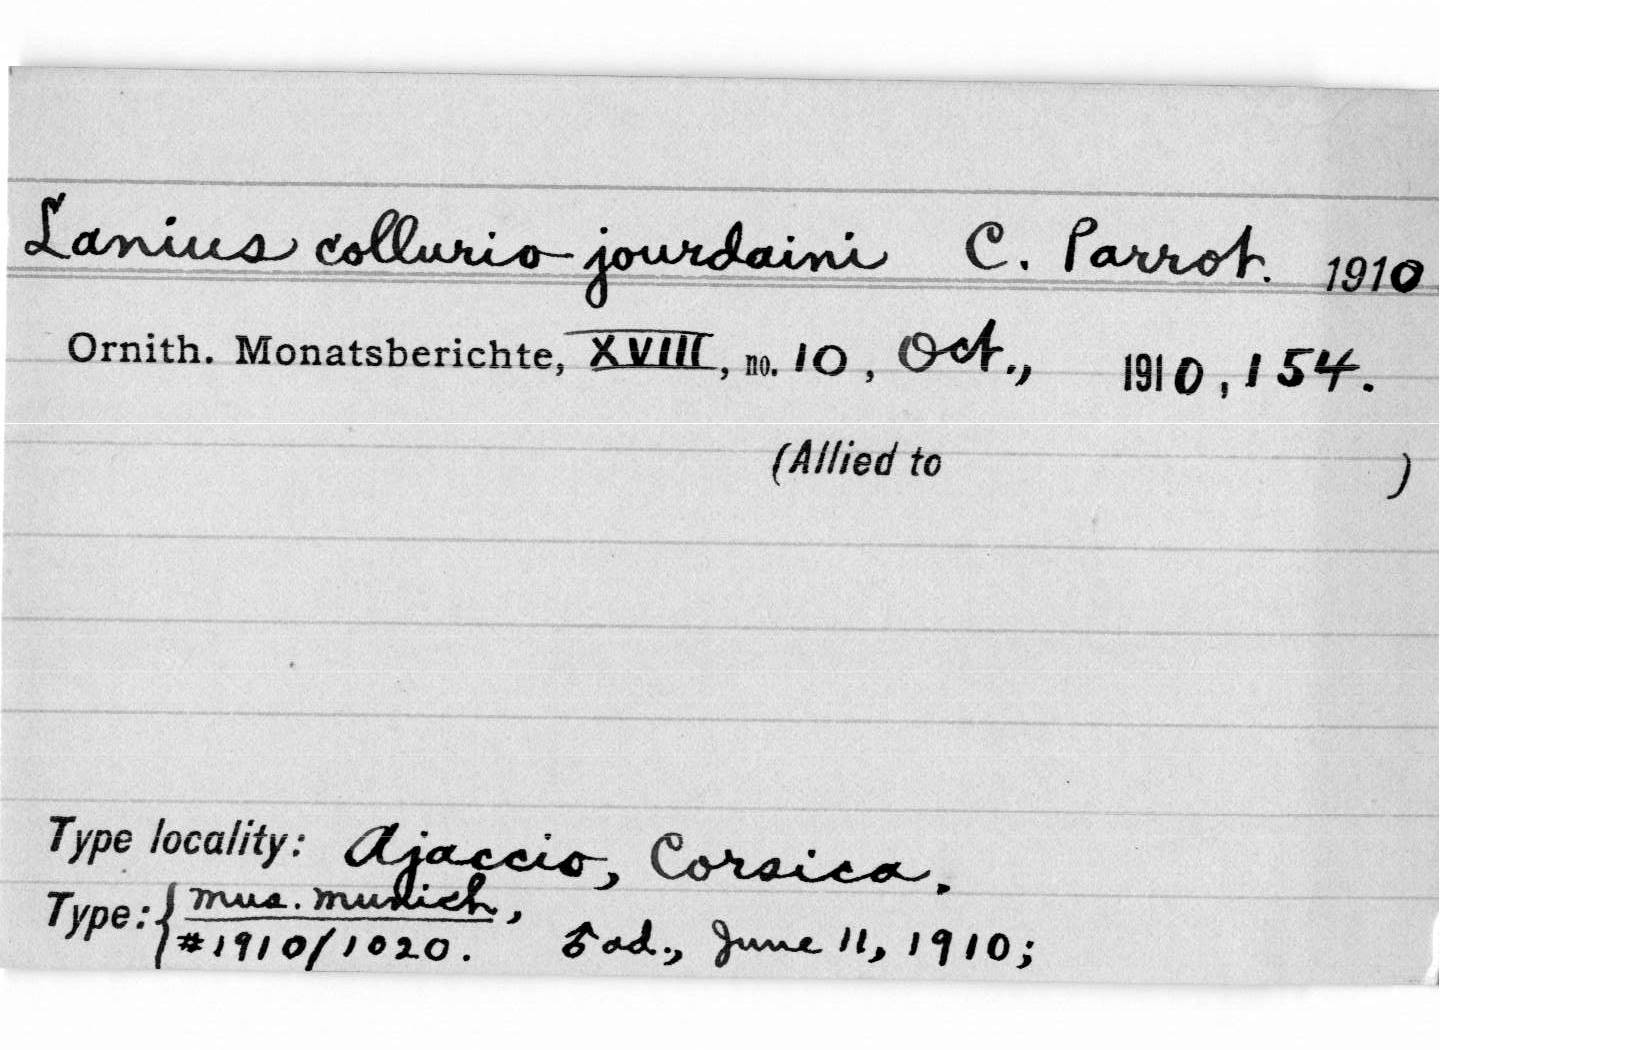 Lanius collurio jourdaini C. Parrot. 1910
Ornith. Monatsberichte, XVIII, no. 10, Oct., 1910, 154.
(Allied to )
Type locality: Ajaccio, Corsica.
Type: { Mus. Munich,
#1910/1020. ♂ ad., June 11, 1910;